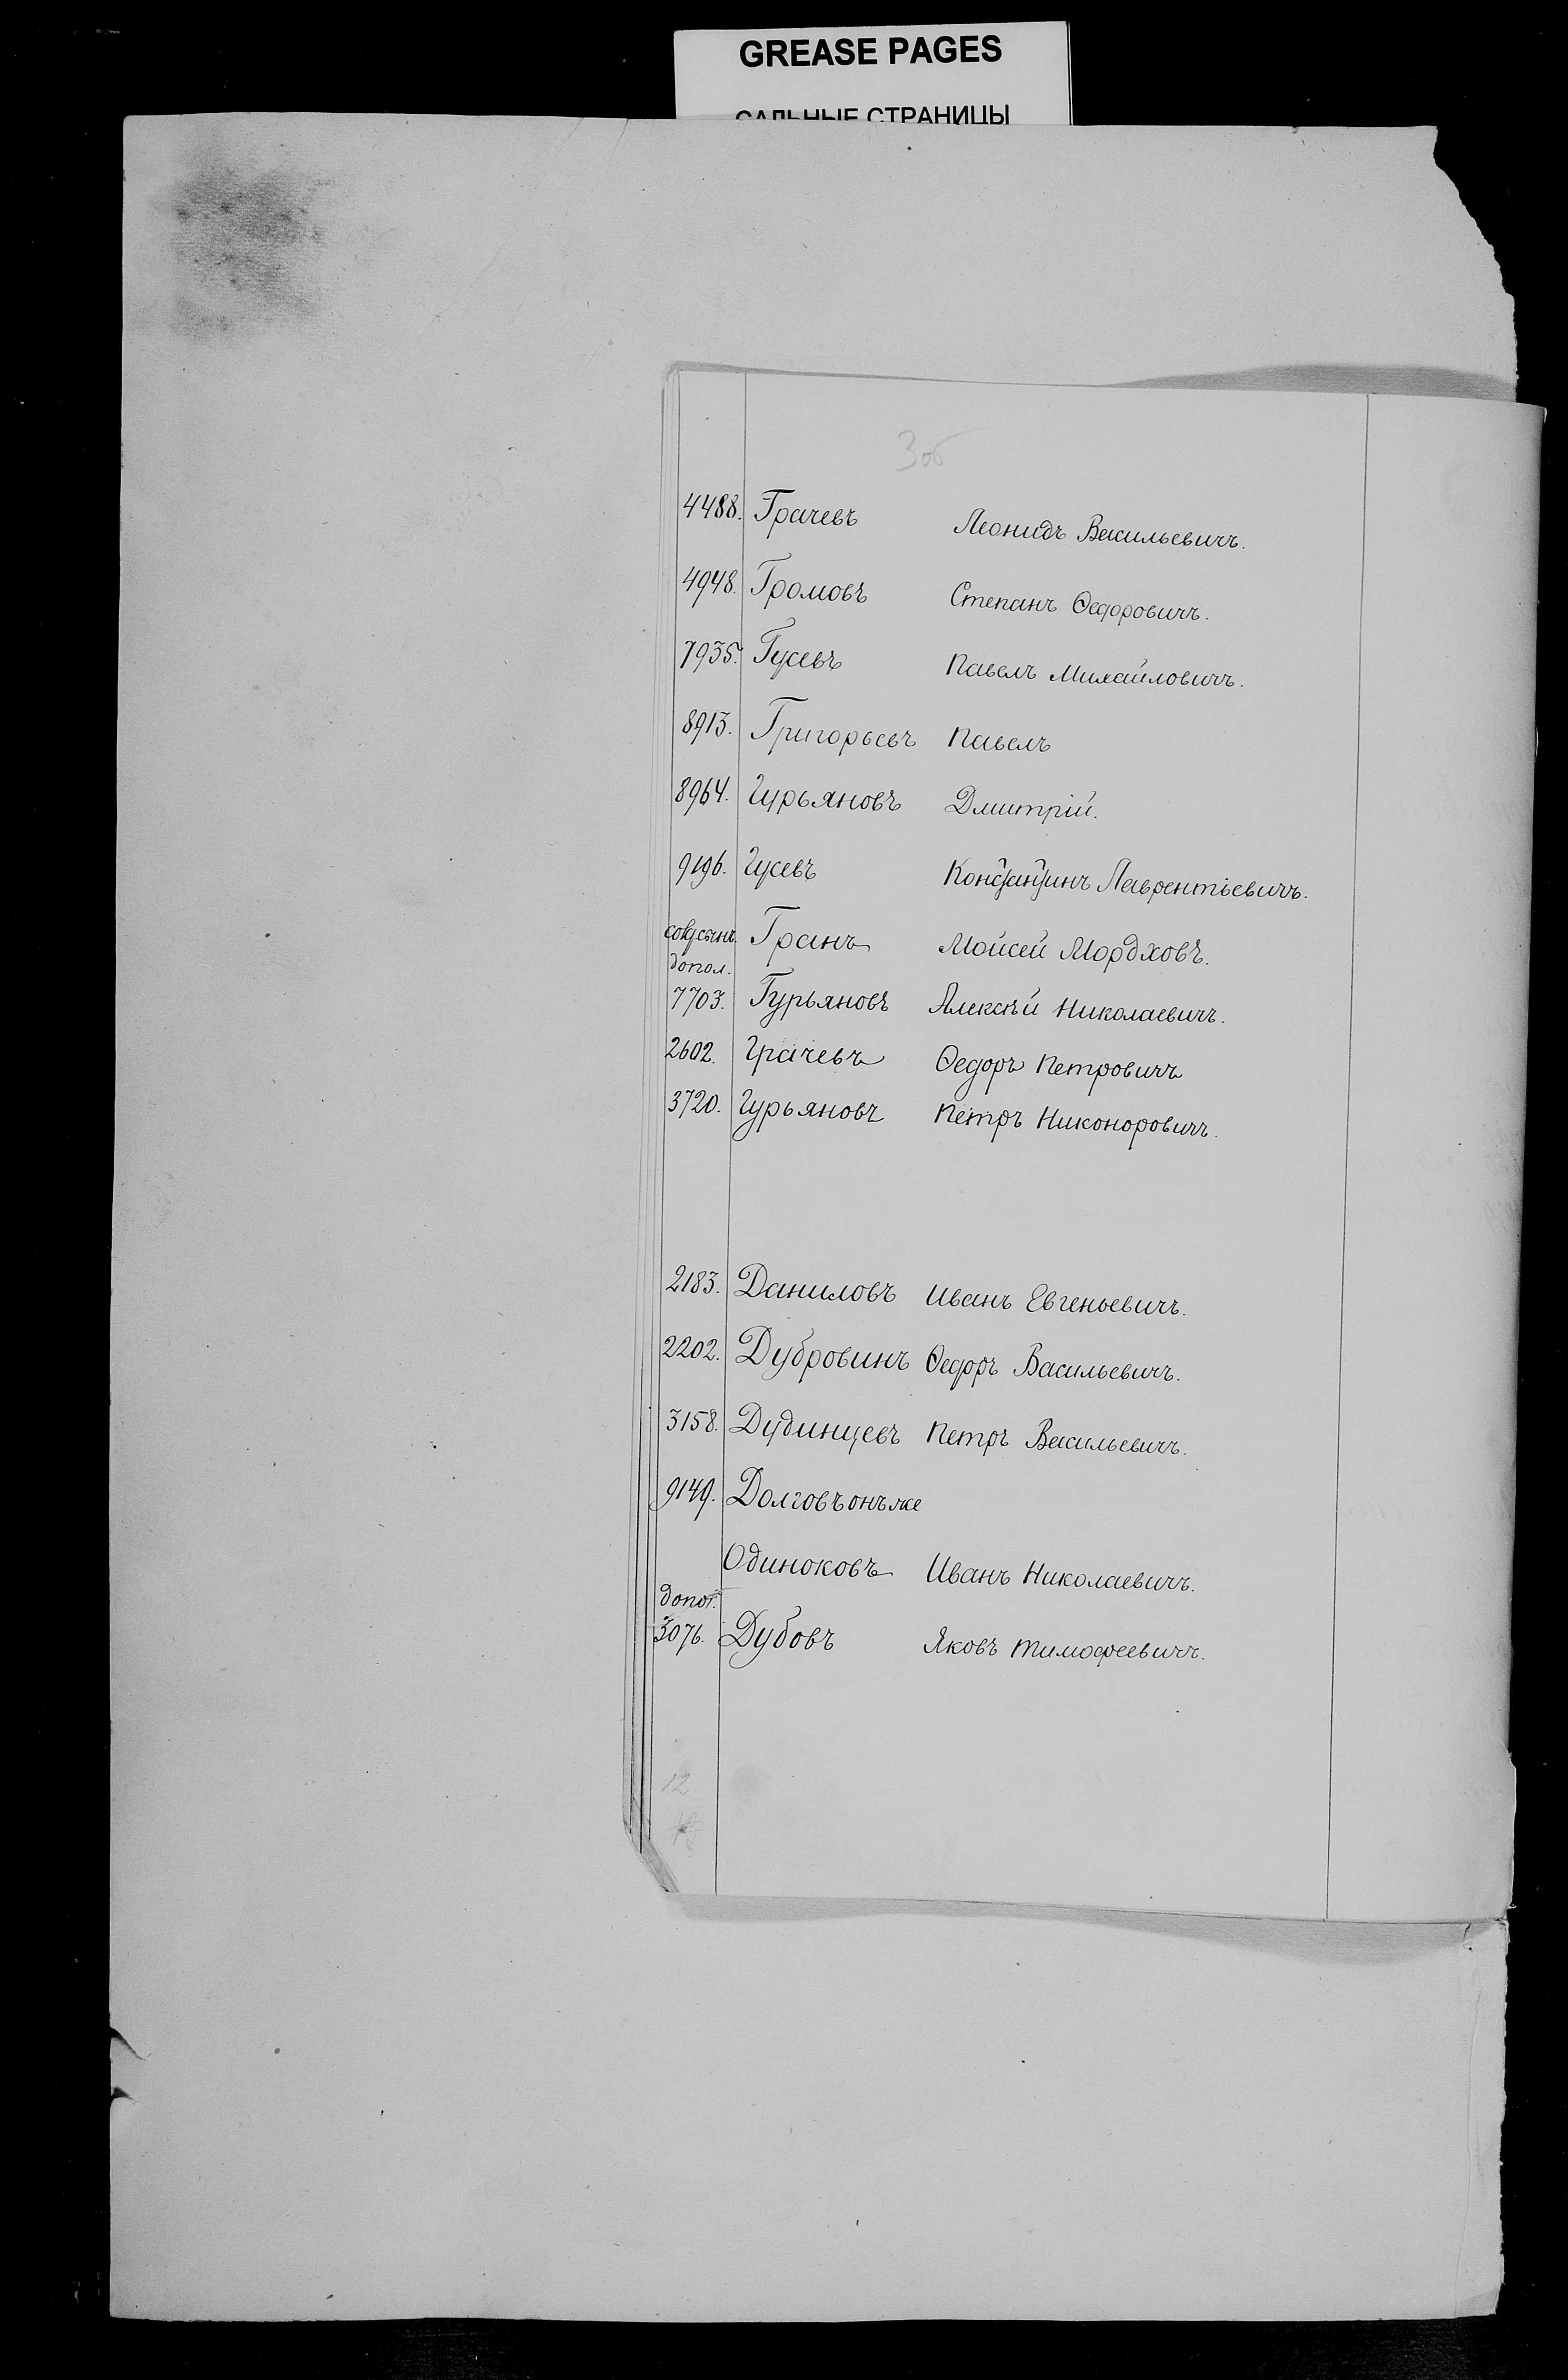 GREASE PAGES
САЛЬНЫЕ СТРАНИЦЫ
3об
4488. Грачевъ Леонидъ Васильевичъ.
4948. Громовъ Степанъ Ѳедоровичъ.
7935. Гусевъ Павелъ Михайловичъ.
8913. Григорьевъ Павелъ
8964. Гурьяновъ Дмитрій.
9196. Гусевъ Константинъ Лаврентіевичъ.
Гранъ Мойсей Мордховъ.
допол.
7703. Гурьяновъ Алексѣй Николаевичъ.
2602. Грачевъ Ѳедоръ Петровичъ
3720. Гурьяновъ Петръ Никоноровичъ.
2183. Даниловъ Иванъ Евгеньевичъ.
2202. Дубровинъ Ѳедоръ Васильевичъ.
3158. Дудинцевъ Петръ Васильевичъ.
9149. Долговъ онъ же
Одиноковъ Иванъ Николаевичъ.
допол.
3076. Дубовъ Яковъ Тимофеевичъ.
12